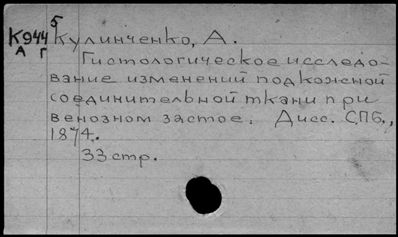 К944
А Г
5
Кулинченко, А.
Гистологическое исследо-
вание изменений подкожной
соединительной ткани при
венозном застое. Дисс. СПб.,
1874.
33 стр.